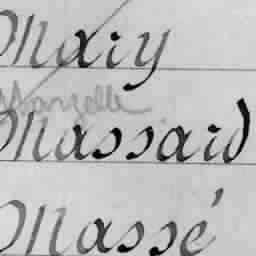 Mary
Marzelle
Massard
Massé